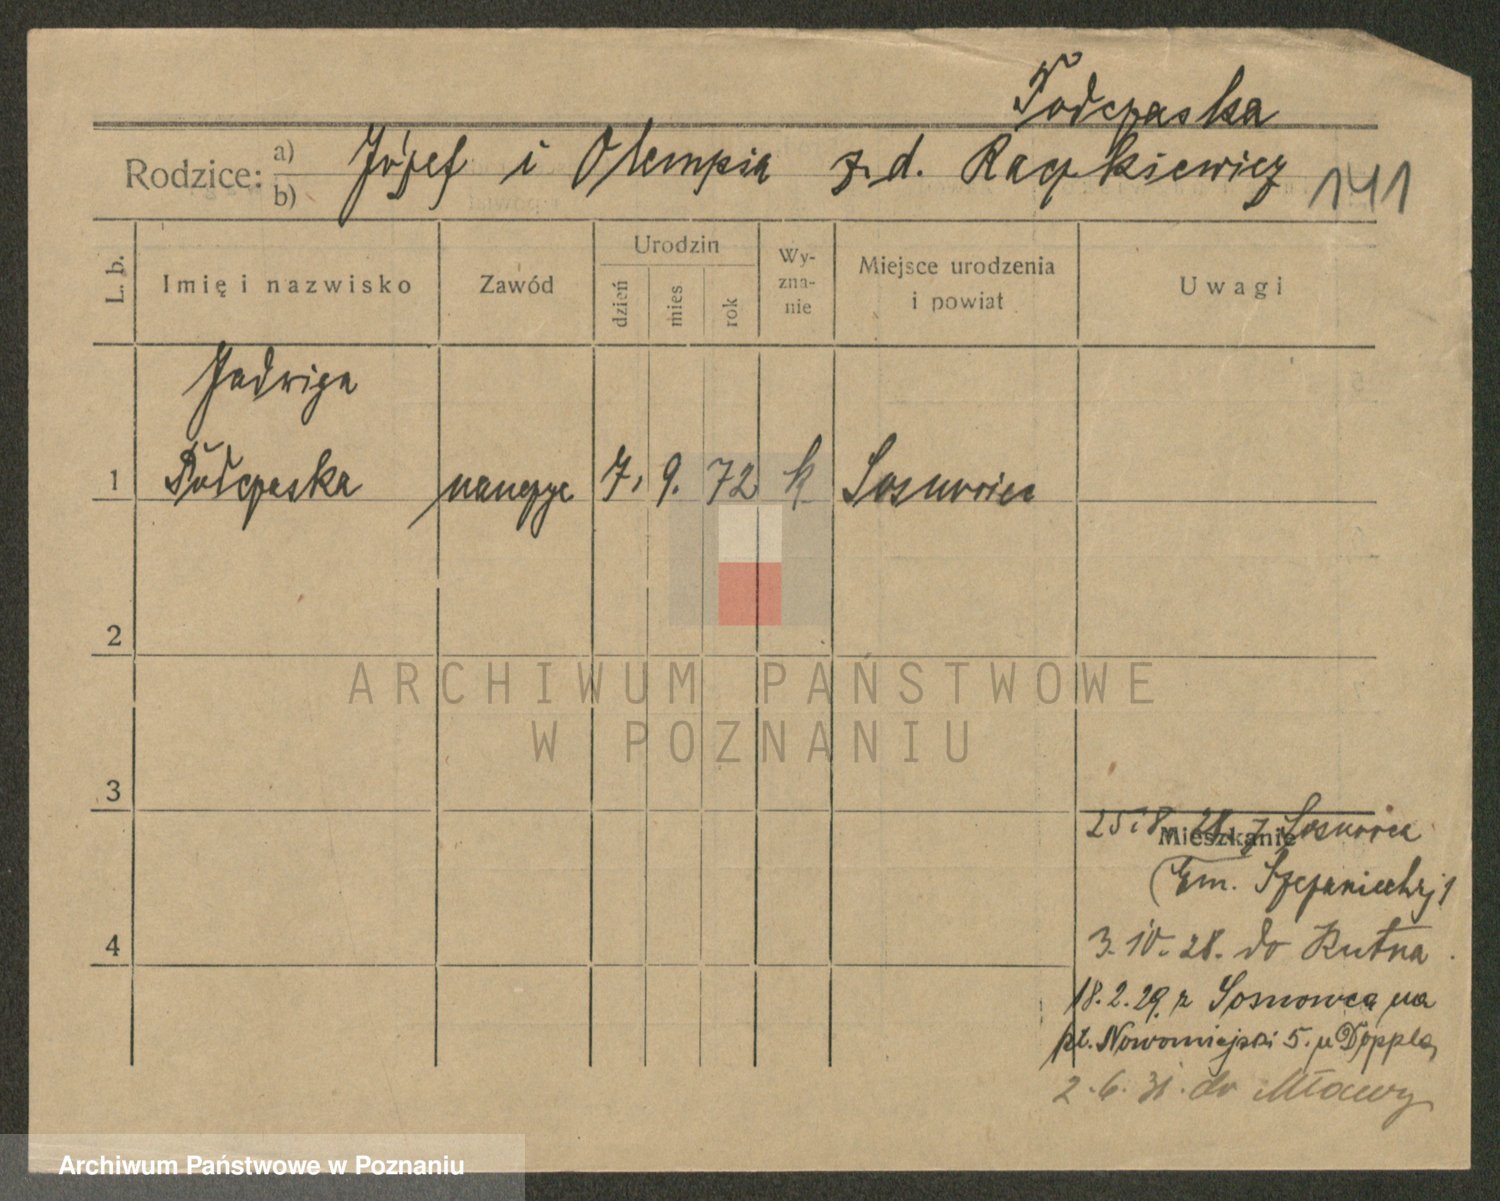 Podczaska
Rodzice: a) b) Józef i Olempia z. d. Raczkiewicz 141
L. b.
Imię i nazwisko
Zawód
Urodzin
dzień
mies
rok
Wy-
zna-
nie
Miejsce urodzenia
i powiat
Uwagi
Jadwiga
1 Podczaska nauczyc 7. 9. 72 k Sosnowiec
2
3
4
Mieszkanie
25 8. 28. z Sosnowca
3. 10. 28. do Kutna
18. 2. 29. z Sosnowca na
pl. Nowomiejski 5. u Doppla
2. 6. 31. do Mławy
ARCHIWUM PAŃSTWOWE
W POZNANIU
Archiwum Państwowe w Poznaniu